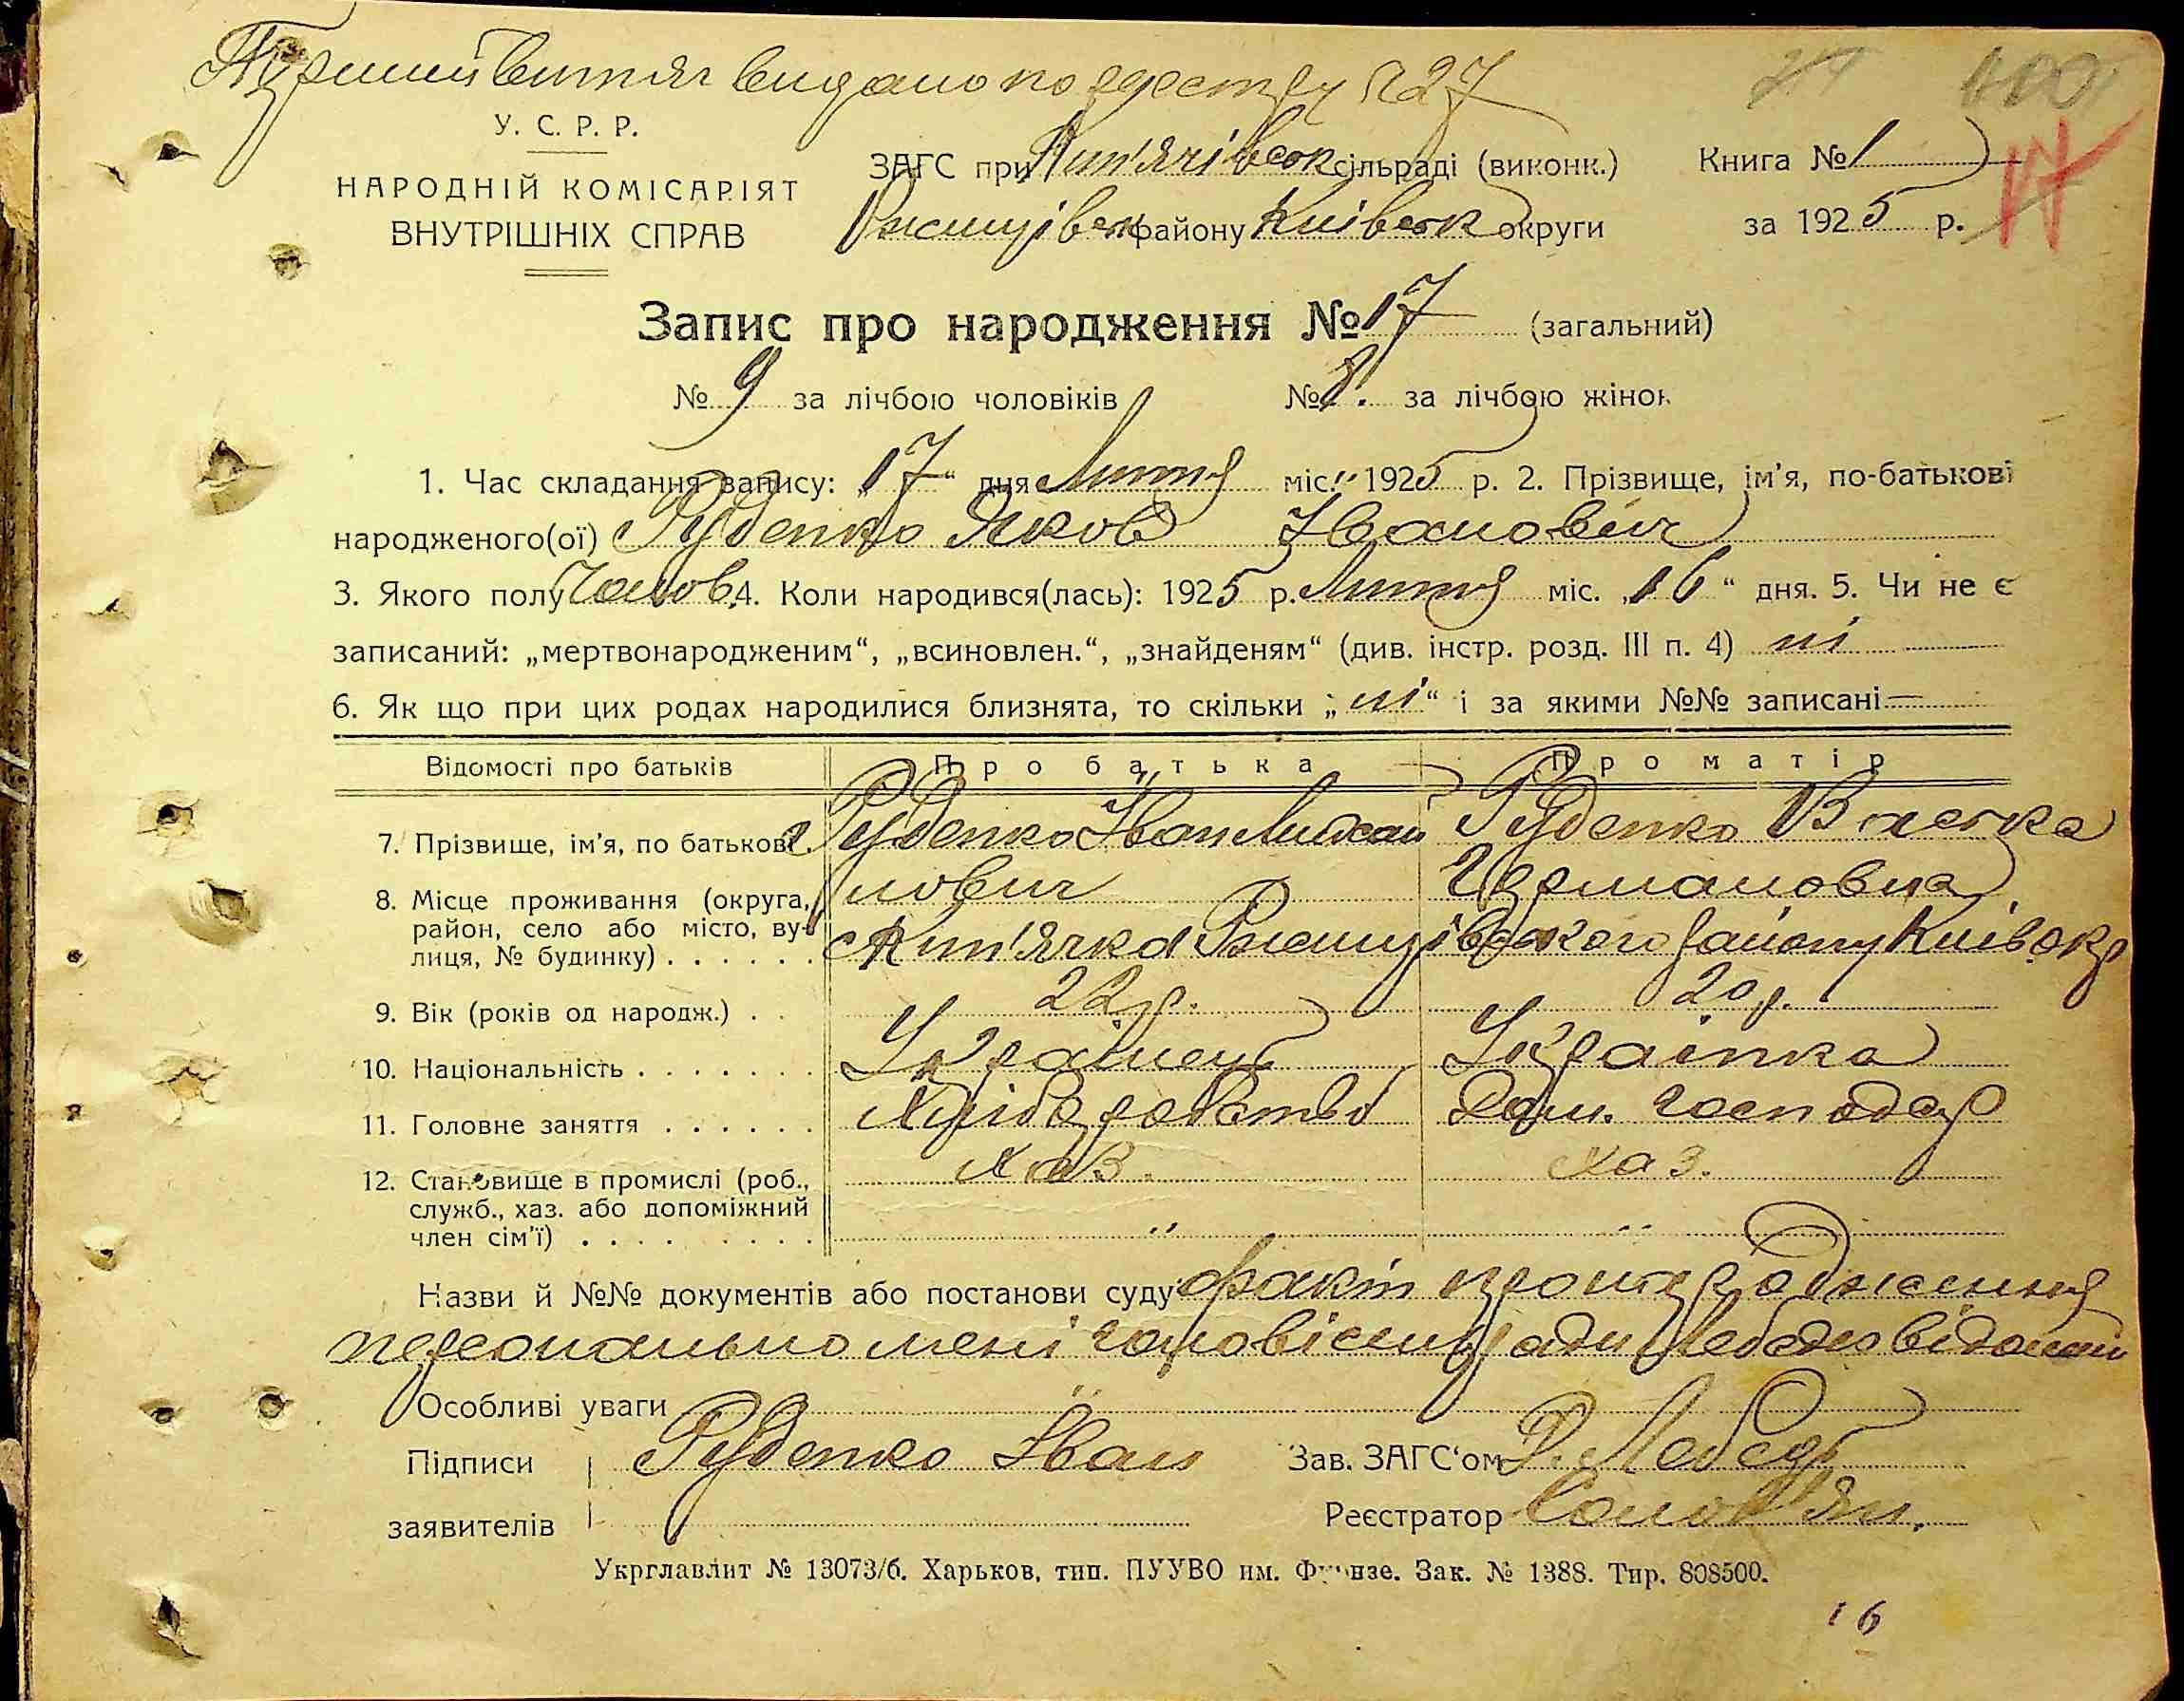 Перший витяг видано по реестру №27
У. С. Р. Р.
НАРОДНІЙ КОМІСАРІЯТ
ВНУТРІШНІХ СПРАВ
ЗАГС при Кип'ячівськ сільраді (виконк.)
Ржищівськ району Київськ округи
Книга № 1
за 1925 р.
17
Запис про народження № 17 (загальний)
№ 9 за лічбою чоловіків № 8. за лічбою жінок
1. Час складання запису: „17“ дня Лютня міс. 1925 р. 2. Прізвище, ім'я, по-батькові
народженого(ої) Руденко Яков Іванович
3. Якого полу Чолов. 4. Коли народився(лась): 1925 р. Лютня міс. „16“ дня. 5. Чи не є
записаний: „мертвонародженим“, „всиновлен.“, „знайденям“ (див. інстр. розд. III п. 4) ні
6. Як що при цих родах народилися близнята, то скільки „ні“ і за якими №№ записані —
Відомості про батьків Про батька Про матір
7. Прізвище, ім'я, по батькові. Руденко Іван Михай Руденко Васка
лович Германовна
8. Місце проживання (округа,
район, село або місто, ву-
лиця, № будинку) . . . . . . с Кип'ячка Ржищівського району Київ окр
9. Вік (років од народж.) . . 22 р. 20 р.
10. Національність . . . . . . . Українець Українка
11. Головне заняття . . . . . . Хліборобство Дом. господар
12. Становище в промислі (роб., хаз. хаз.
служб., хаз. або допоміжний
член сім'ї) . . . . . . . . . " "
Назви й №№ документів або постанови суду факт народження
персонально мені голові сільради Лебедю відомий
Особливі уваги
Підписи Руденко Іван Зав. ЗАГС'ом Лебедь
заявителів Реєстратор
Укрглавлит № 13073/б. Харьков, тип. ПУУВО им. Фрунзе. Зак. № 1388. Тир. 808500.
16